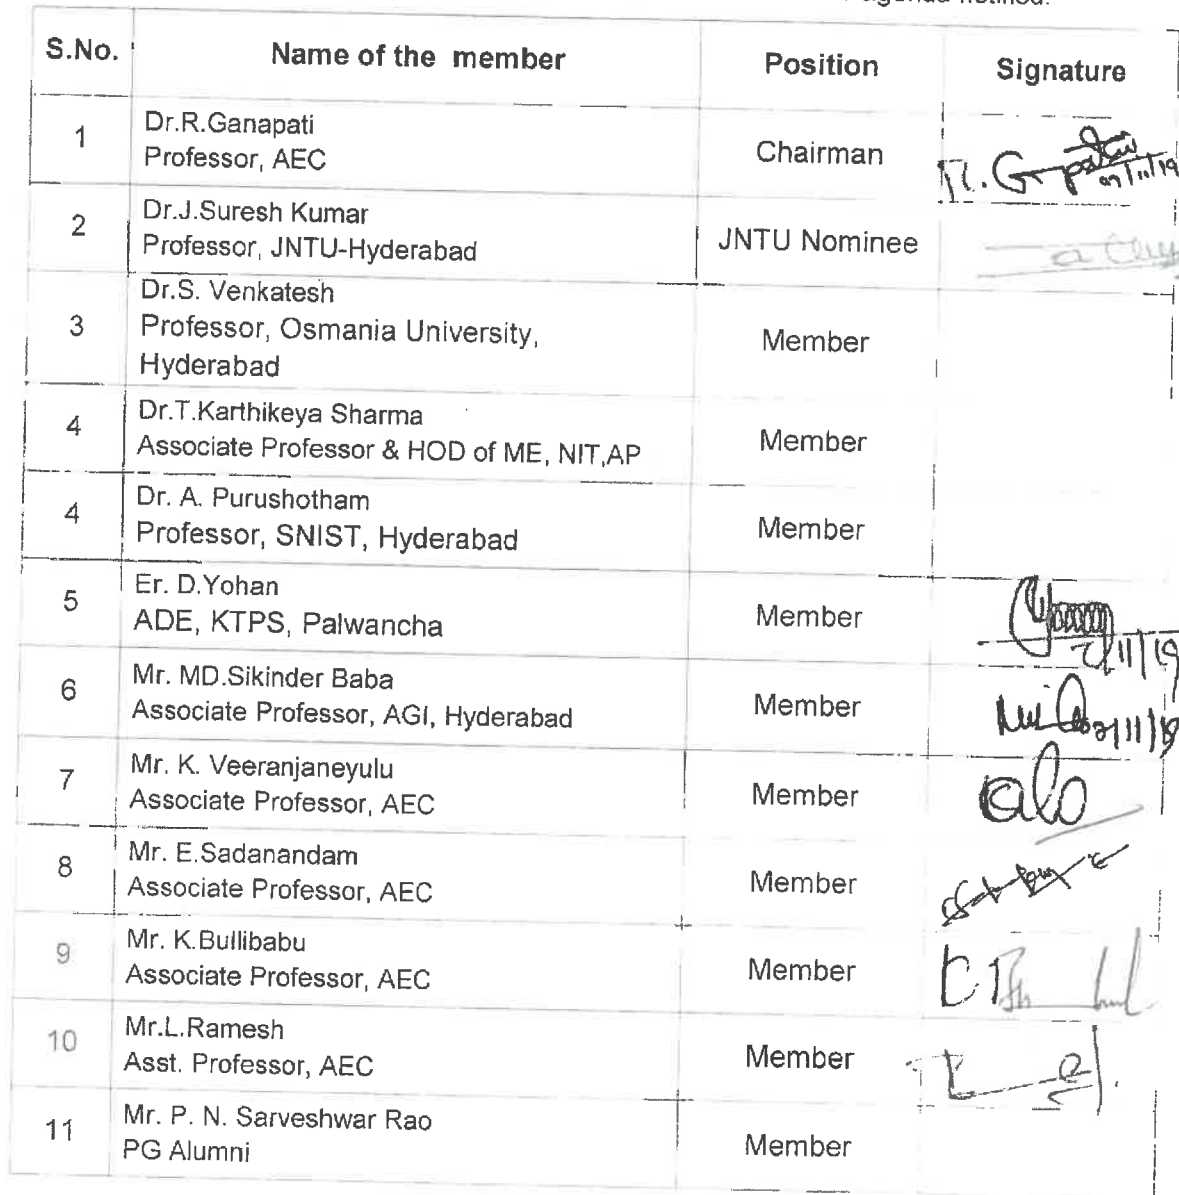 agenda notified.
S.No. Name of the member Position Signature
1 Dr.R.Ganapati
Professor, AEC Chairman
2 Dr.J.Suresh Kumar
Professor, JNTU-Hyderabad JNTU Nominee
3 Dr.S. Venkatesh
Professor, Osmania University,
Hyderabad Member
4 Dr.T.Karthikeya Sharma
Associate Professor & HOD of ME, NIT,AP Member
4 Dr. A. Purushotham
Professor, SNIST, Hyderabad Member
5 Er. D.Yohan
ADE, KTPS, Palwancha Member
6 Mr. MD.Sikinder Baba
Associate Professor, AGI, Hyderabad Member
7 Mr. K. Veeranjaneyulu
Associate Professor, AEC Member
8 Mr. E.Sadanandam
Associate Professor, AEC Member
9 Mr. K.Bullibabu
Associate Professor, AEC Member
10 Mr.L.Ramesh
Asst. Professor, AEC Member
11 Mr. P. N. Sarveshwar Rao
PG Alumni Member